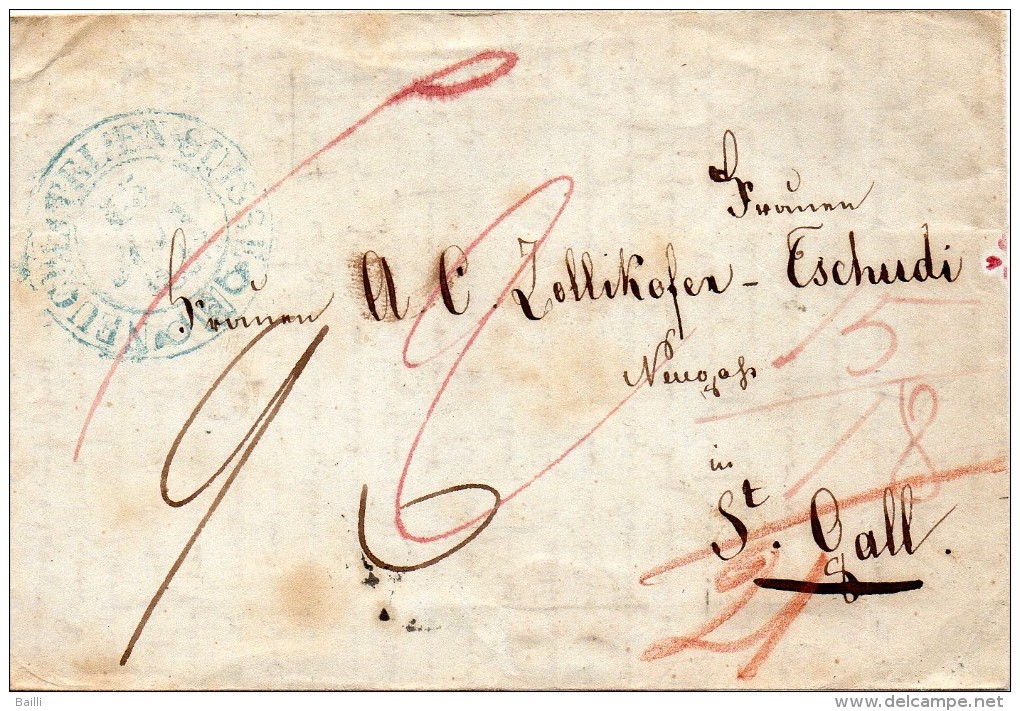 NEUCHATEL EN SUISSE
Frauen
Frauen A. C. Zollikofer - Tschudi
Neugaß
in
St. Gall.
9
6
15
18
21
Bailli
delcampe.net